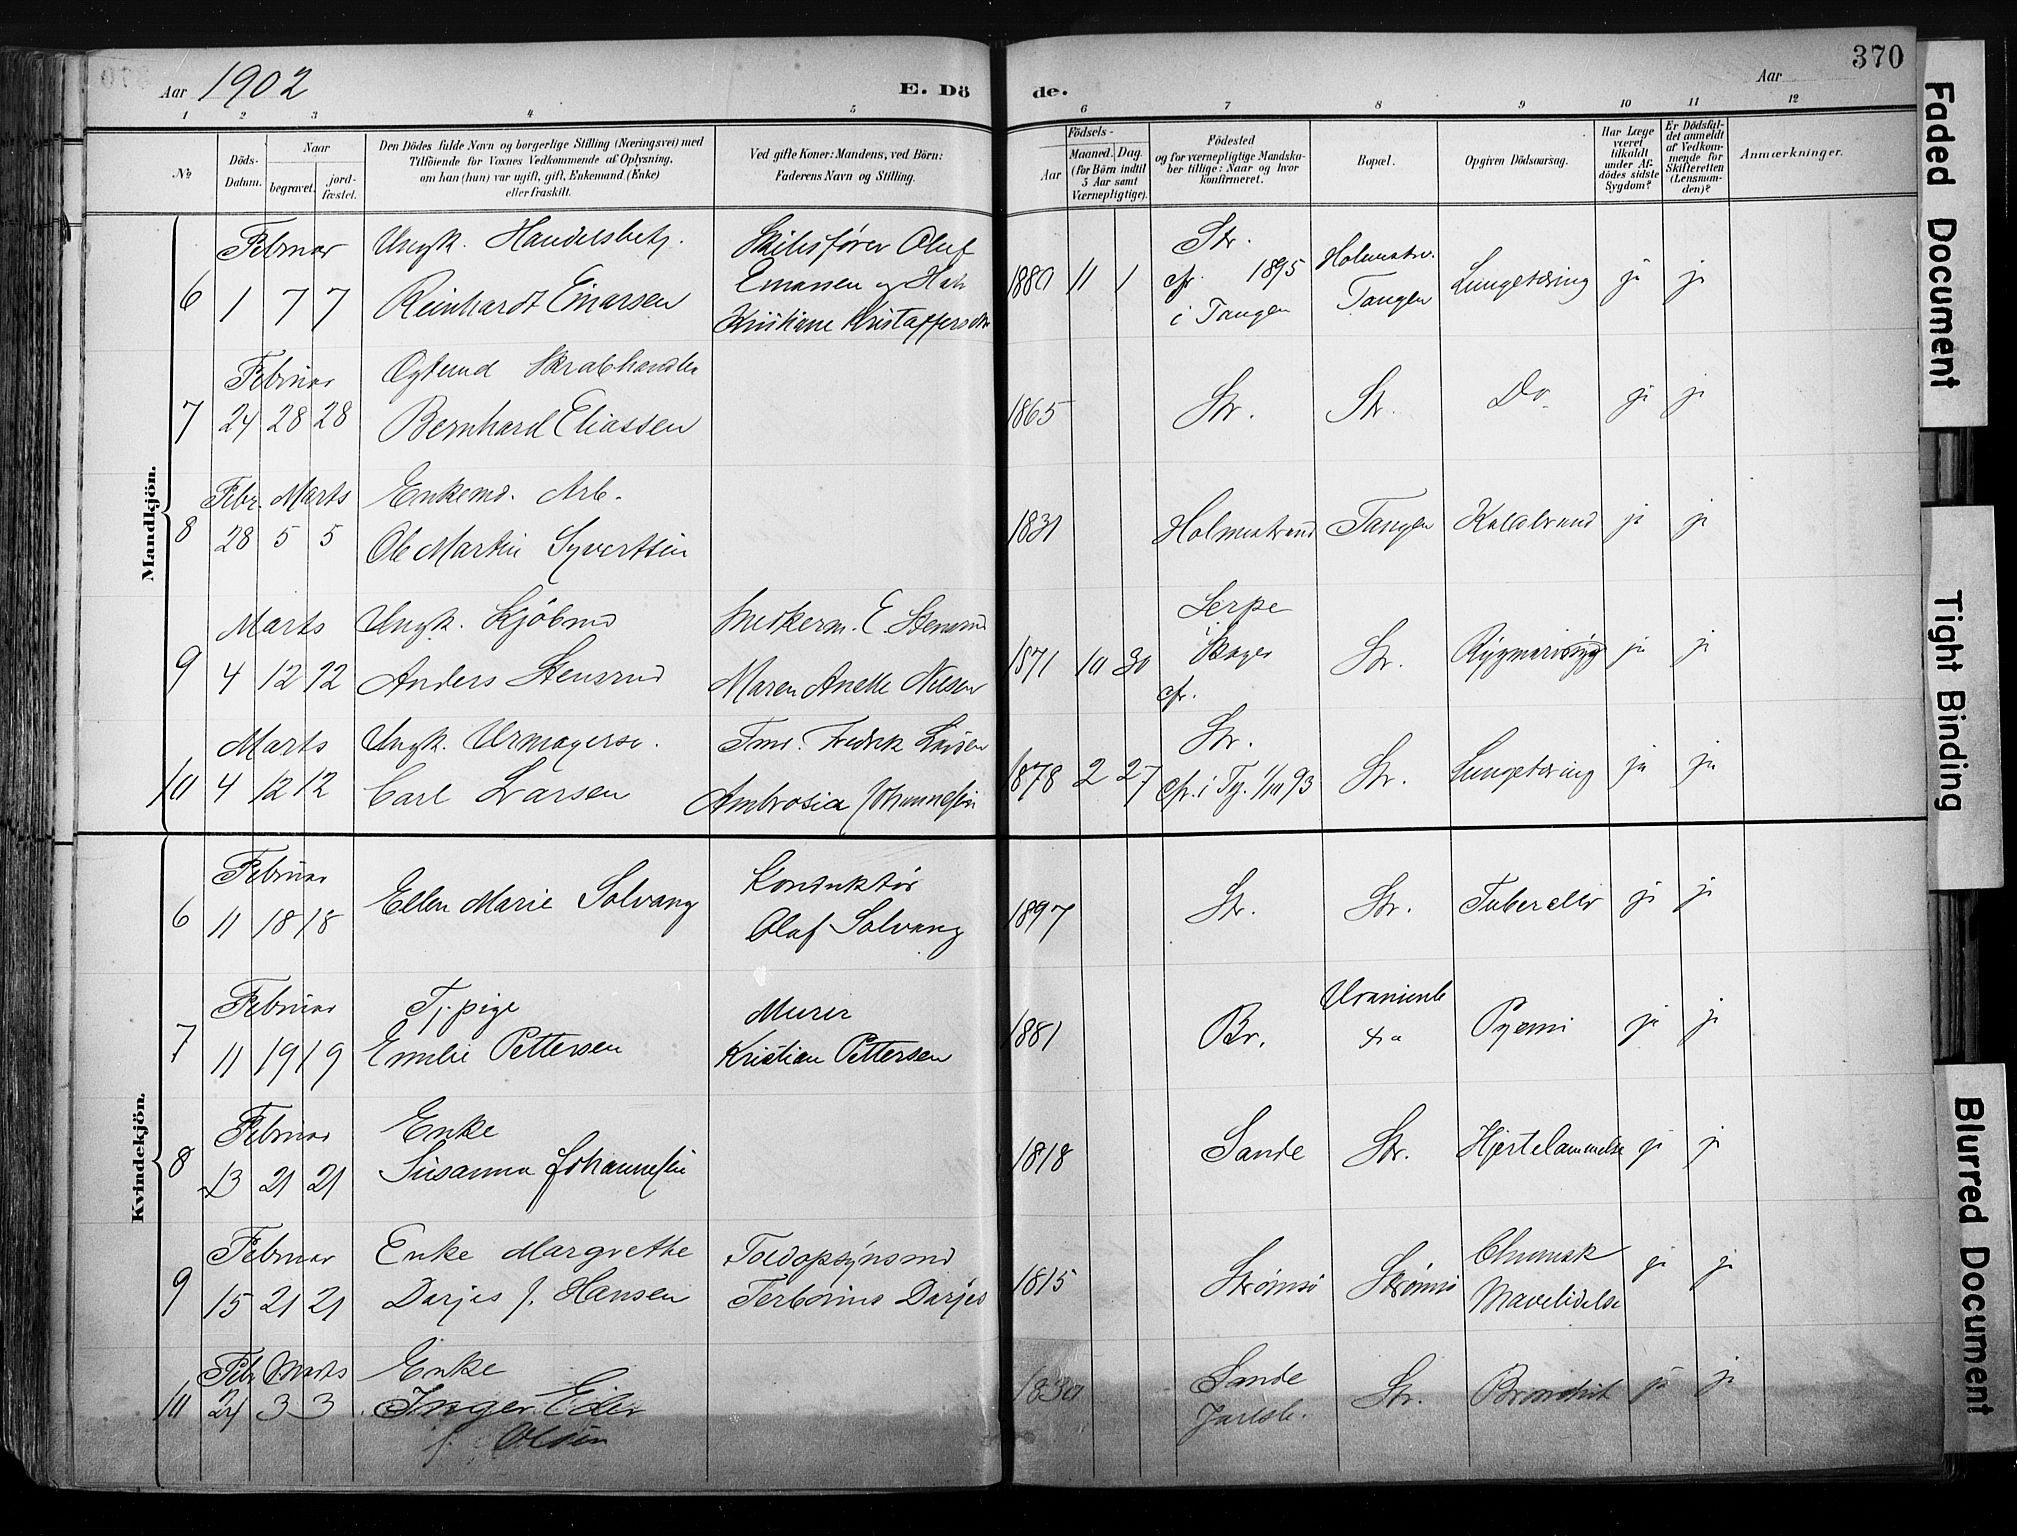 370
Aar 1902
E. Dö
de.
Aar
1 2 3 4 5 6 7 8 9 10 11 12
No
Döds-Datum.
Naar
begravet.
jord-fæstet.
Den Dödes fulde Navn og borgerlige Stilling (Næringsvei) med
Tilföiende for Voxnes Vedkommende af Oplysning,
om han (hun) var ugift, gift, Enkemand (Enke)
eller fraskilt.
Ved gifte Koner: Mandens, ved Börn:
Faderens Navn og Stilling.
Födsels-
Aar
Maaned. Dag.
(for Börn indtil
5 Aar samt
Værnepligtige).
Födested
og for værnepligtige Mandska-
ber tillige: Naar og hvor
konfirmeret.
Bopæl.
Opgiven Dödsaarsag.
Har Læge
været
tilkaldt
under Af-
dödes sidste
Sygdom?
Er Dödsfal-
det anmeldt
af Vedkom-
mende for
Skifteretten
(Lensman-
den)?
Anmærkninger.
Mandkjön.
Februar Ungk. Handelsbetj. Skibsfører Oluf Str. Holmestr.
6 1 7 7 Reinhardt Einarsen 1880 11 1 cfr. 1895 Tangen Lungetæring ja ja
Kristiane Kristoffersdtr i Tangen
Februar
7 24 28 28 Bernhard Eliassen 1865 Str. Str. Do ja ja
Febr. Marts Enkemd. Arb.
8 28 5 5 Ole Martin Syvertsen 1831 Holmestrand Tangen Koldbrand ja ja
Marts Ungk. Kjöbmd Snekerm. E. Stensrud
9 4 12 12 Anders Stensrud Maren Anette Nilsen 1871 10 30 cfr. Str. Rygmarvsyg ja ja
Marts Ungk. Urmagersv. Tmr. Fredrik Larsen Str.
10 4 12 12 Carl Larsen Ambrosia Johannesen 1878 2 27 cfr. i Tg. 1/10 93 Str. Lungetæring ja ja
Kvindekjön.
Februar Konduktör
6 11 18 18 Ellen Marie Solvang Olaf Solvang 1897 Str. Str. ja ja
Februar Tj. pige Murer
7 11 19 19 Emilie Pettersen Kristian Pettersen 1881 Br. Pyemi ja ja
Februar Enke
8 13 21 21 Susanna Johannesen 1818 Sande Str. Hjertelammelse ja ja
Februar Enke Margrethe Toldopsynsmd Chronisk
9 15 21 21 Darjes f. Hansen Darjes 1815 Strømsö Strømsö Mavelidelse ja ja
Feb. Marts Enke Sande
10 24 3 3 Inger 1830 Jarlsb. Str. ja ja
f. Olsen
Faded Document
Tight Binding
Blurred Document